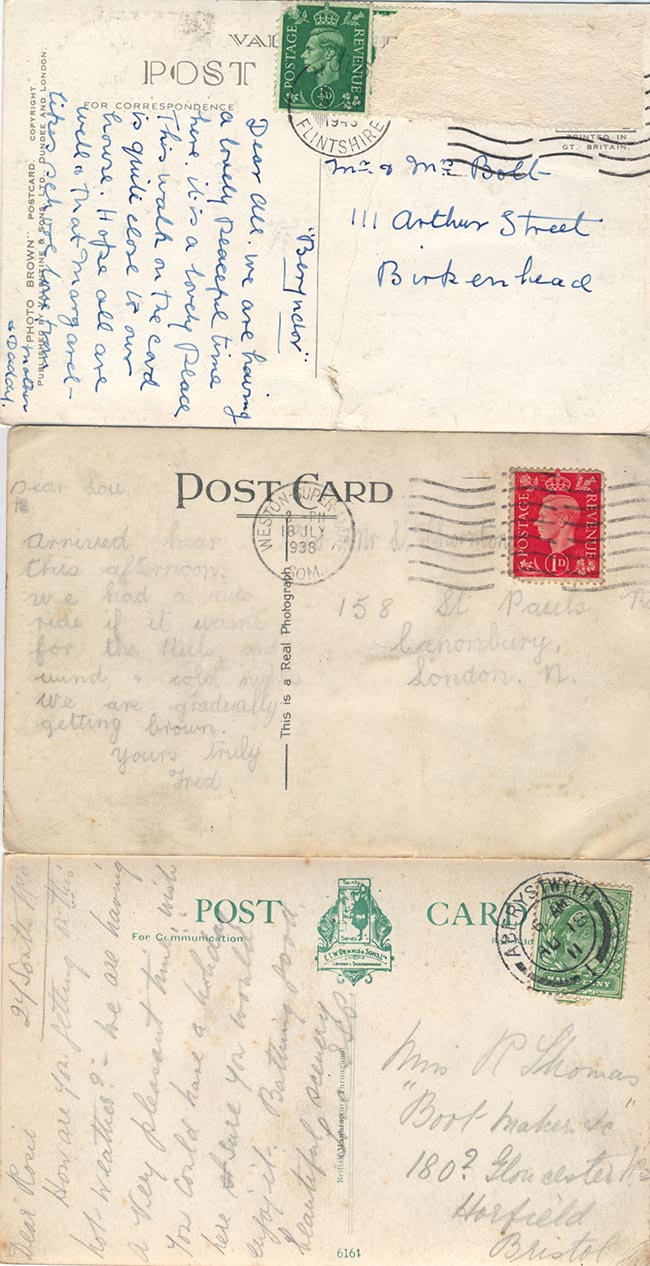 POST
FOR CORRESPONDENCE
POSTAGE REVENUE
½D
FLINTSHIRE
PRINTED IN
GT. BRITAIN.
COPYRIGHT.
"PHOTO BROWN" POSTCARD.
PUBLISHED BY VALENTINE & SONS, LTD., DUNDEE AND LONDON.
Dear All. We are having
a lovely Peaceful time
here it is a lovely Place
This walk on the card
is quite close to our
house. Hope all are
well & that Margaret
likes school
Mother
& Daddy.
Mr & Mrs Bolt
111 Arthur Street
Birkenhead
POST CARD
WESTON-SUPER-MARE
18 JLY
1938
SOM.
POSTAGE REVENUE
1D
This is a Real Photograph
Dear Lou
Arrived hear
this afternoon.
we had a nice
ride if it wasn't
for the Hills and
wind, & cold nights
We are gradually
getting brown.
Yours truly
Fred
Mr L.
158 St Pauls
Canonbury,
London. N.
POST CARD
For Communication
E.T.W. DENNIS & SONS LTD
LONDON & SCARBOROUGH
ABERYSTWYTH
JY 19
11
HALFPENNY
British Manufacture Throughout
6161
Dear Rosie
How are you getting on this
hot weather? - We all having
a very pleasant time, wish
you could have a holiday
here. Sure you would
enjoy it. Bathing good
beautiful scenery
Miss R Thomas
"Boot Maker &c"
180? Gloucester Rd
Horfield
Bristol